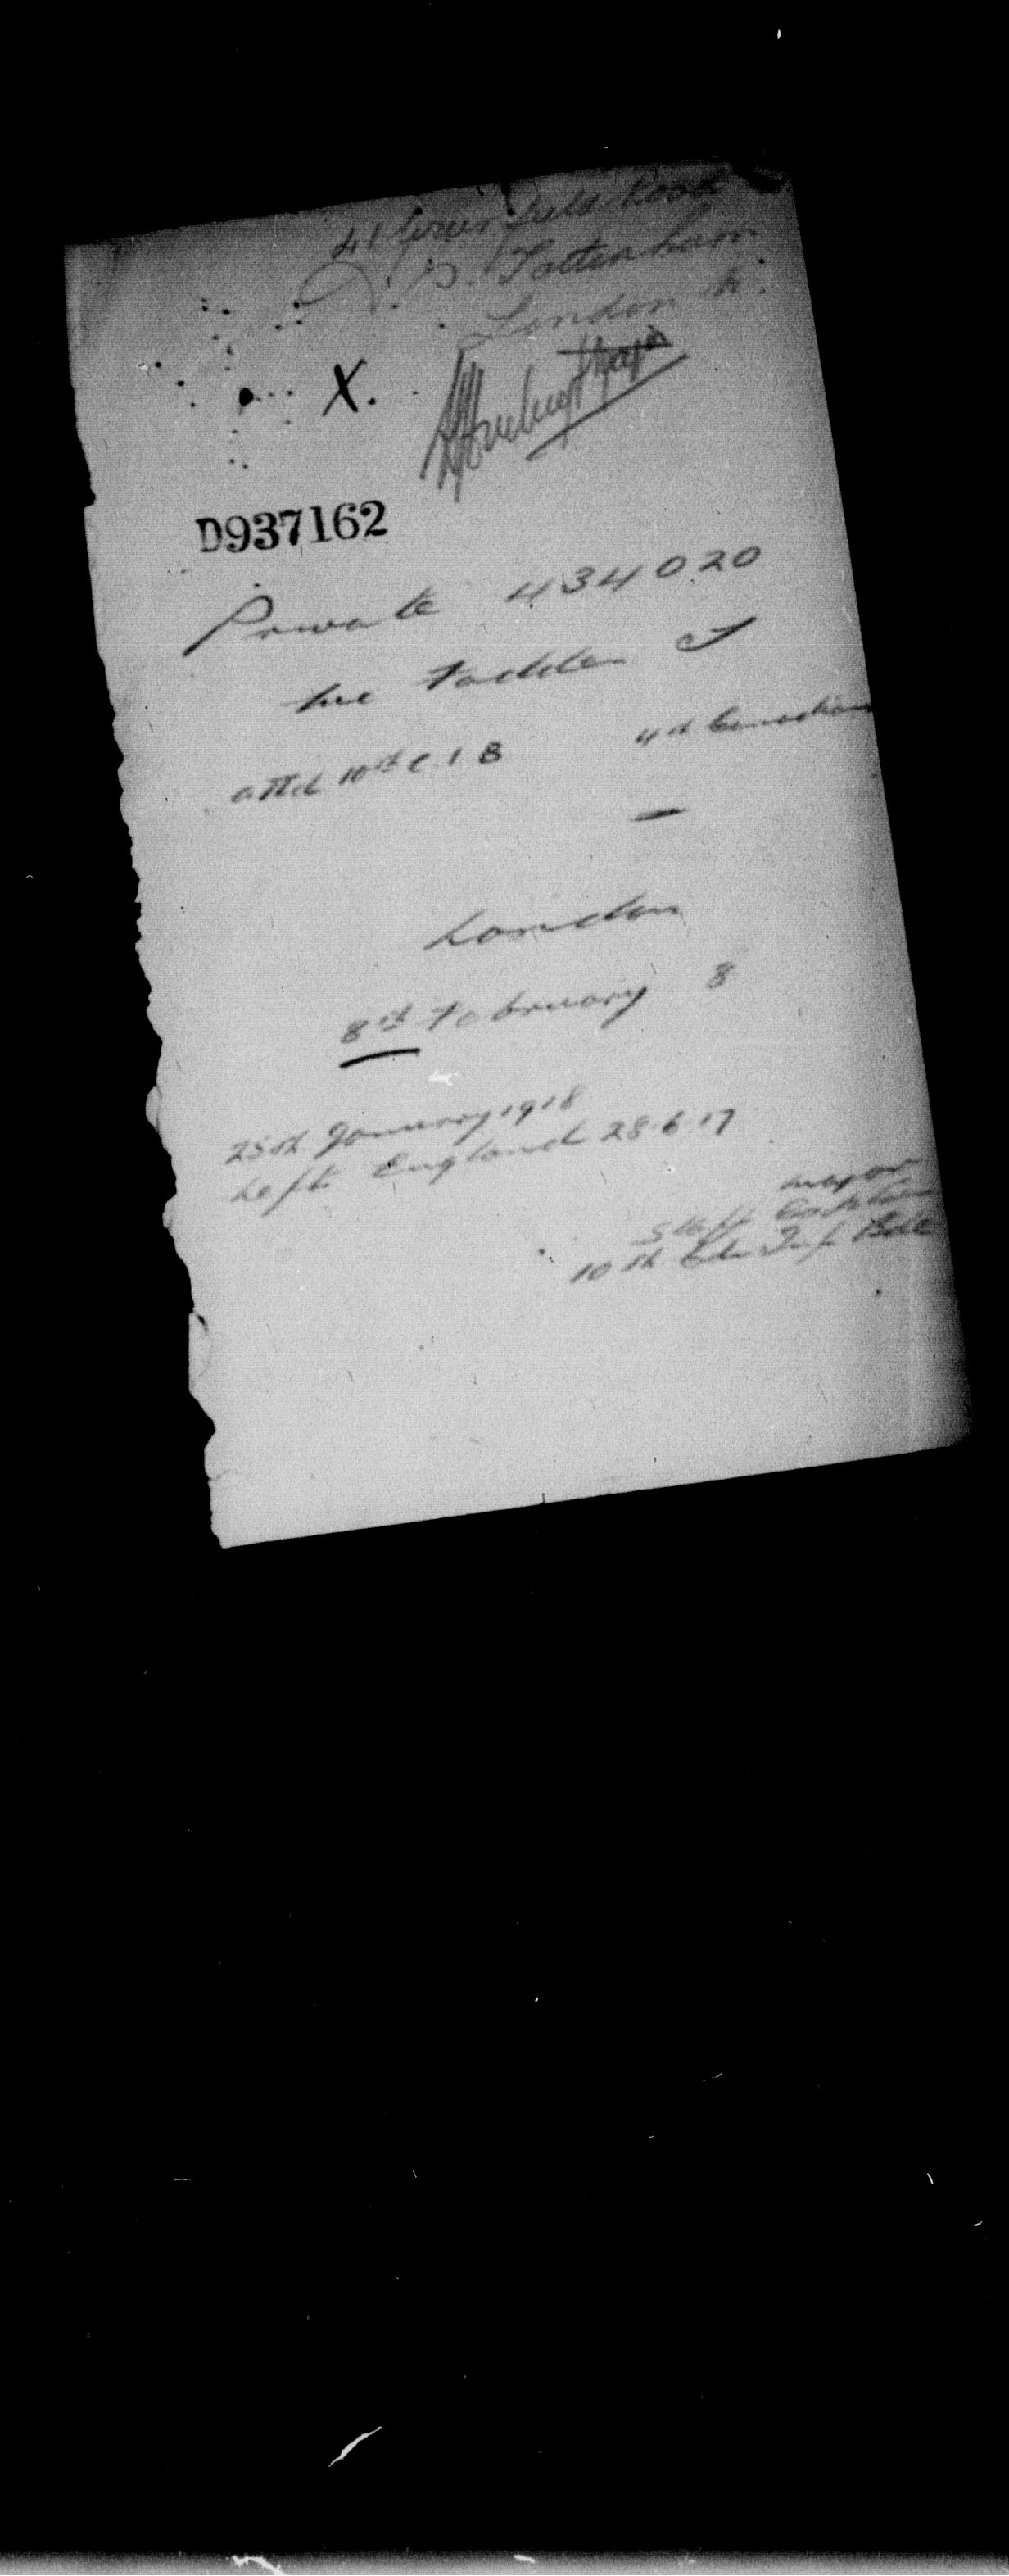 41 Road
S. Tottenham
London N.
X.
D937162
Private 434020
Mc Fadden J
attd 10th C. I B 4th Canadian
London
8th February 8
25th January 1918
Left England 28.6.17
Major
Staff Captain
10th Cdn Inf Bde